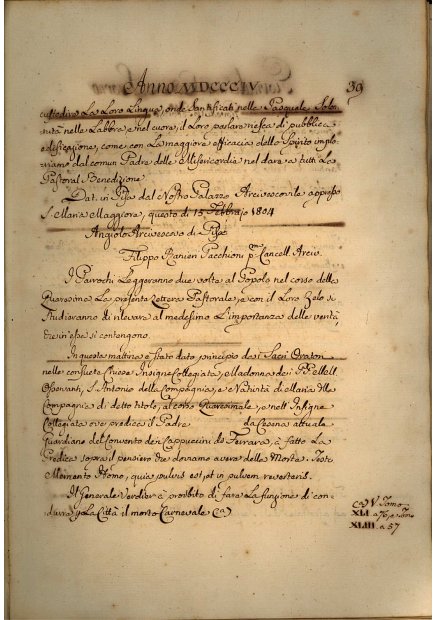 Anno MDCCCIV 39
custodire La Loro Lingua, onde Santificati nelle Pasquale Solen
nità nelle Labbra, e nel cuore, il Loro parlare riesca di pubblica
edificazione, come con La maggiore efficacia dello Spirito implo
riamo dal comun Padre delle Misericordie nel dare a tutti La
Pastoral Benedizione
Dat. in Pisa dal Nostro Palazzo Arcivescovile appresso
S. Maria Maggiore, questo dì 15 Febbrajo 1804
Angiolo Arcivescovo di Pisa
Filippo Ranieri Pacchioni Cancell. Arciv.
I Parrochi Leggeranno due volte al Popolo nel corso della
Quaresima La presente Lettera Pastorale, e con il Loro Zelo si
studieranno di rilevare al medesimo L'importanza delle verità
che in essa si contengono.
In questa mattina è stato dato principio dai Sacri Oratori
nelle consuete Chiese Insigne Collegiata, Madonna dei
Osservanti, S. Antonio della Compagnia, e Natività di Maria
Compagnia di detto titolo, al corso Quaresimale, e nell' Insigne
Collegiata ove predica il Padre da Cesena attuale
Guardiano del Convento dei Cappuccini di Ferrara, à fatto La
Predica sopra il pensiero che dovamo avere della Morte. Test.
Memento Homo, quia pulvis est, et in pulvem reverteris.
Il Generale Verdier à proibito di fare La funzione di con
durre La Città il morto Carnevale (a)
(a) V. Tomo
XLI a 76, e Tomo
XLIII a 57